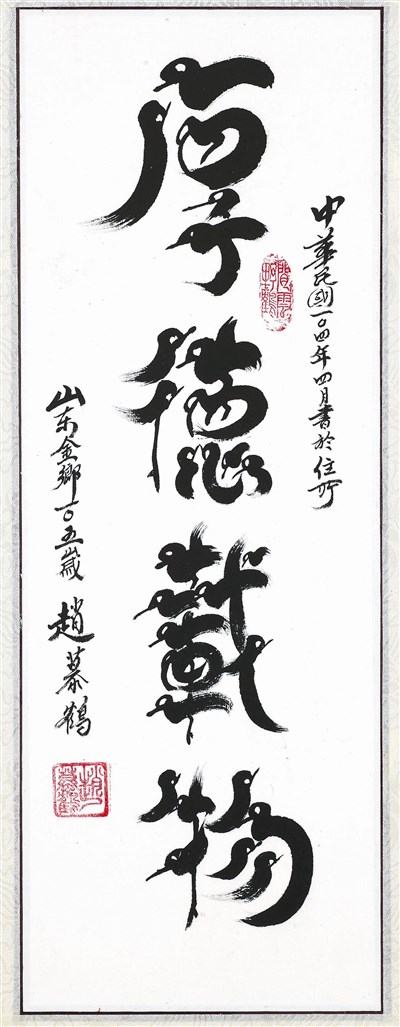 厚德載物
中華民國一〇四年四月書於住所
山东金鄉一〇五歲
趙慕鶴